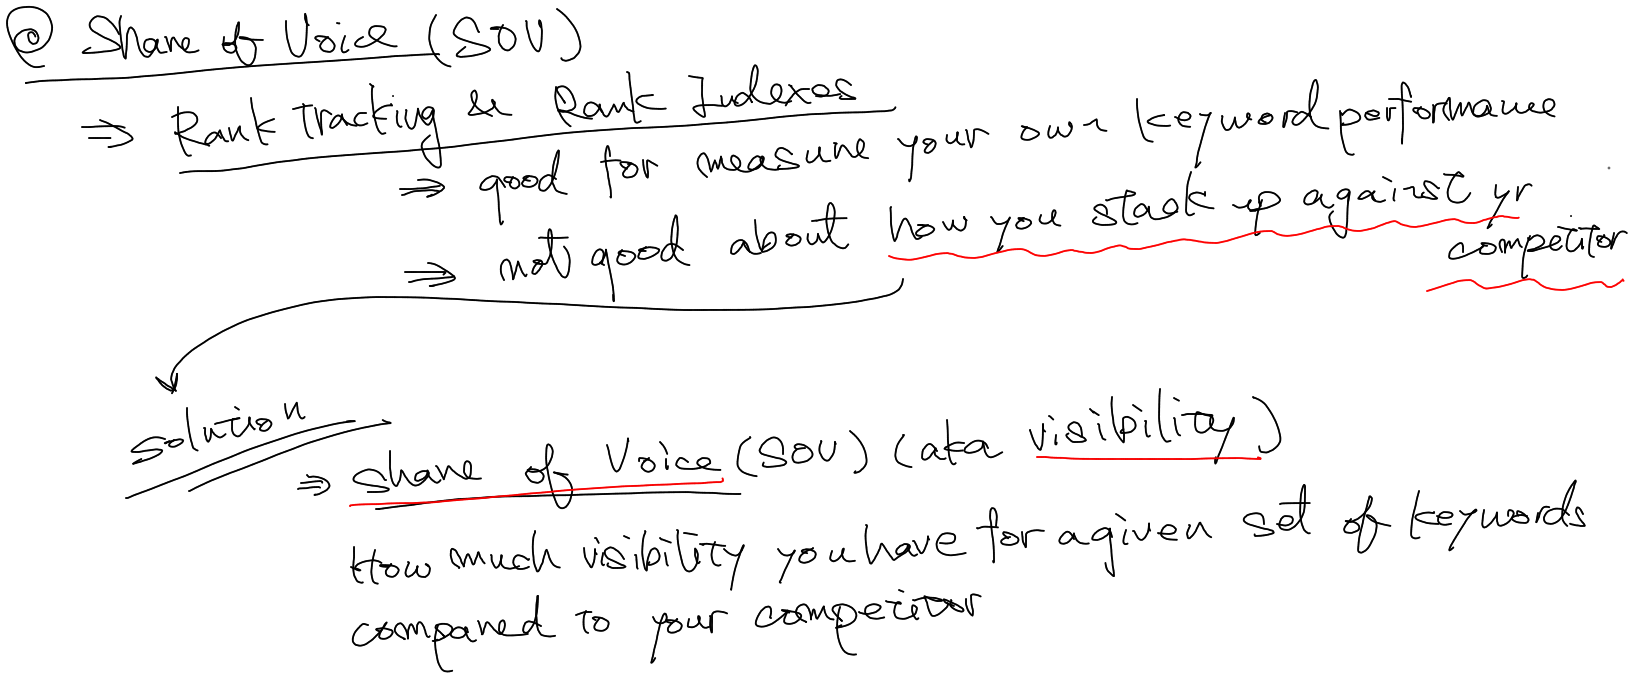 @ Share of Voice (SOV)
⇒ Rank Tracking & Rank Indexes
⇒ good for measure your own keyword performance
⇒ not good about how you stack up against yr
competitor
solution
⇒ share of Voice (SOV) (aka visibility)
How much visibility you have for a given set of keywords
compared to your competitor